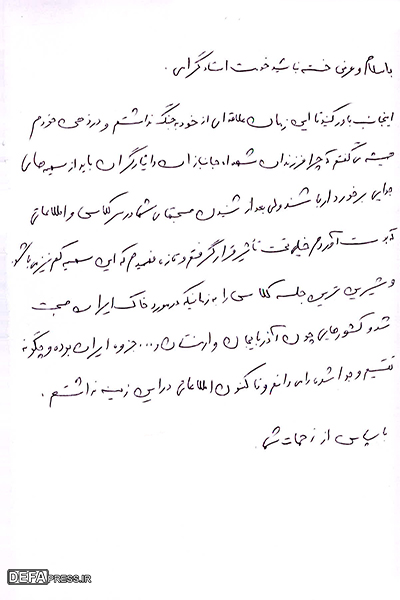 باسلام و عرض خسته نباشید خدمت استاد گرامی.
اینجانب باور کنید تا این زمان علاقه‌ای از خود به جنگ نداشتم و در ذهن خودم
همیشه می‌گفتم که چرا فرزندان شهدا، جانبازان و ایثارگران باید از سهمیه‌های
جدایی برخوردار باشند ولی بعد از شنیدن صحبتهای شما در سر کلاس و اطلاعاتی
که بدست آوردم خیلی تحت تأثیر قرار گرفتم و تازه فهمیدم که این سهمیه کم نیز می‌باشد
و شیرین ترین جلسه کلاسی را به زمانیکه در مورد خاک ایران صحبت
شد و کشورهایی چون آذربایجان و ارمنستان و ... جزو ایران بوده و چگونه
تقسیم و جدا شد، را می‌دانم و تاکنون اطلاعاتی در این زمینه نداشتم.
با سپاس از زحمات شما
DEFAPRESS.IR